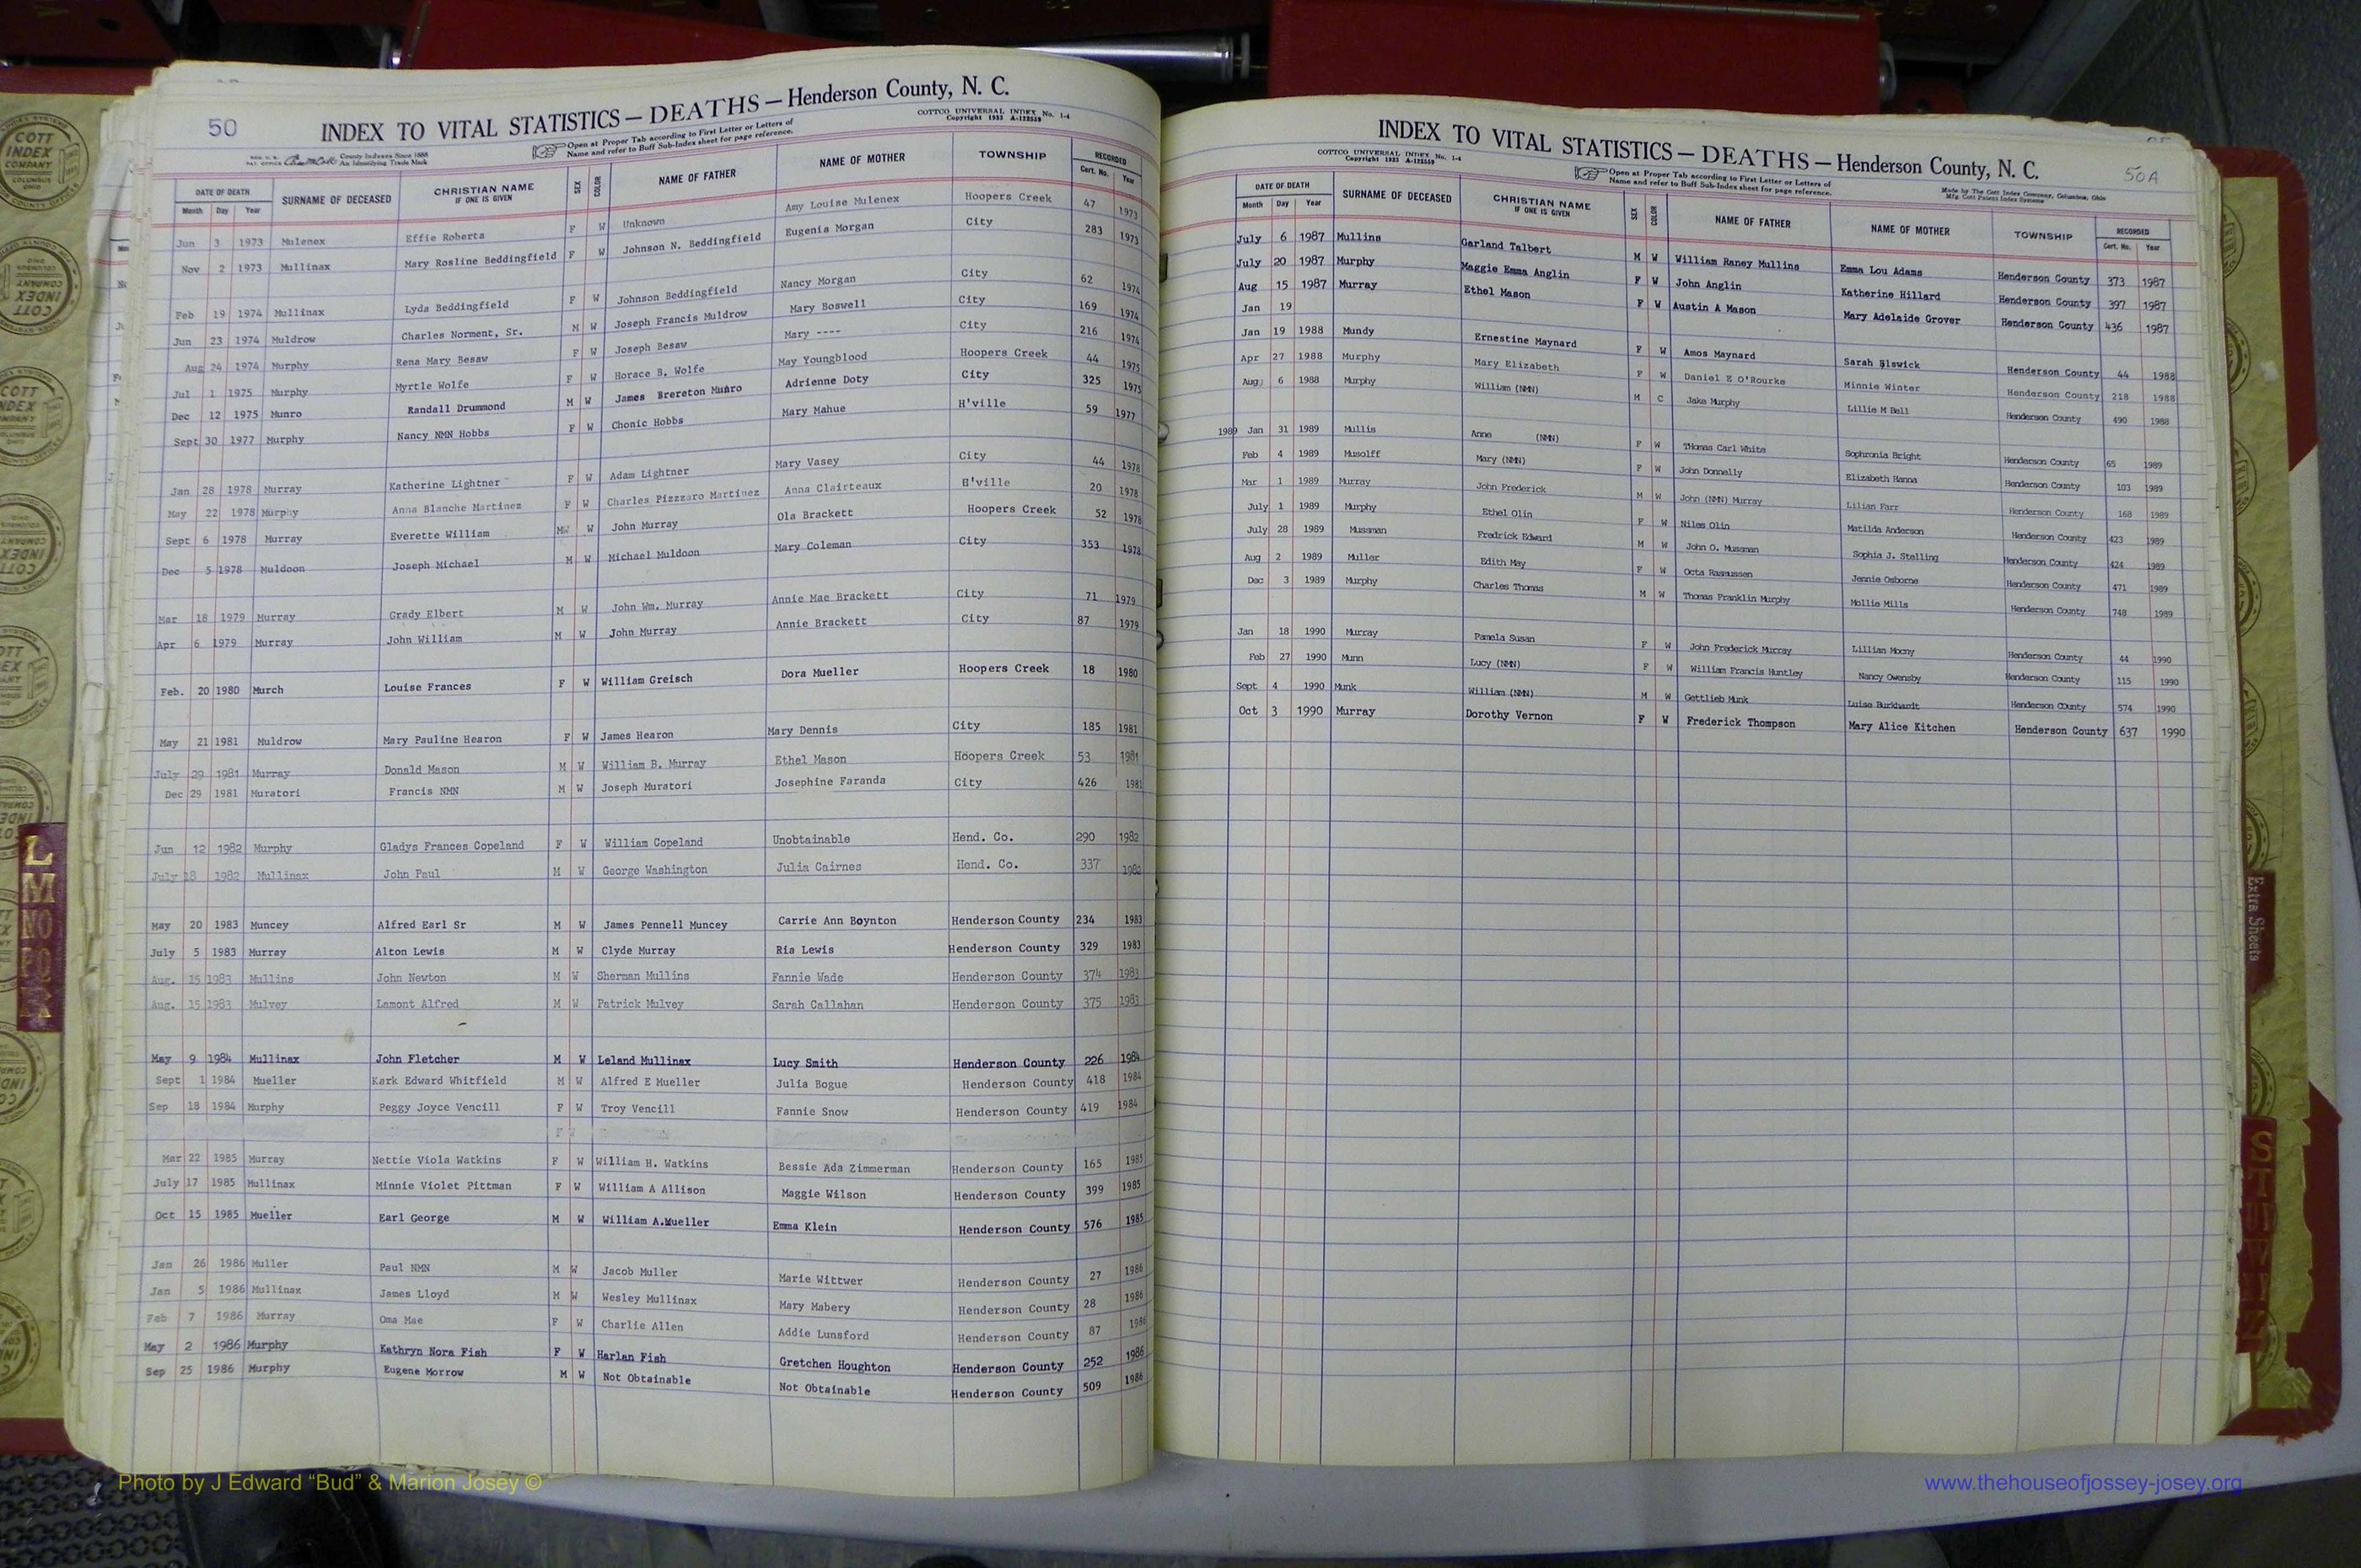 50
INDEX TO VITAL STATISTICS — DEATHS — Henderson County, N. C.
COTTCO UNIVERSAL INDEX No. 1-4
Copyright 1933 A-122559
County Indexes Since 1888
An Identifying Trade Mark
Open at Proper Tab according to First Letter or Letters of
Name and refer to Buff Sub-Index sheet for page reference.
DATE OF DEATH SURNAME OF DECEASED CHRISTIAN NAME IF ONE IS GIVEN SEX COLOR NAME OF FATHER NAME OF MOTHER TOWNSHIP RECORDED
Month Day Year Cert. No. Year
Jun 3 1973 Mulenex Effie Roberta F W Unknown Amy Louise Mulenex Hoopers Creek 47 1973
Nov 2 1973 Mullinax Mary Rosline Beddingfield F W Johnson N. Beddingfield Eugenia Morgan City 283 1973
Feb 19 1974 Mullinax Lyda Beddingfield F W Johnson Beddingfield Nancy Morgan City 62 1974
Jun 23 1974 Muldrow Charles Norment, Sr. M W Joseph Francis Muldrow Mary Boswell City 169 1974
Aug 24 1974 Murphy Rena Mary Besaw F W Joseph Besaw Mary ---- City 216 1974
Jul 1 1975 Murphy Myrtle Wolfe F W Horace B. Wolfe May Youngblood Hoopers Creek 44 1975
Dec 12 1975 Munro Randall Drummond M W James Brereton Munro Adrienne Doty City 325 1975
Sept 30 1977 Murphy Nancy NMN Hobbs F W Chonic Hobbs Mary Mahue H'ville 59 1977
Jan 28 1978 Murray Katherine Lightner F W Adam Lightner Mary Vasey City 44 1978
May 22 1978 Murphy Anna Blanche Martinez F W Charles Pizzzaro Martinez Anna Clairteaux H'ville 20 1978
Sept 6 1978 Murray Everette William MW W John Murray Ola Brackett Hoopers Creek 52 1978
Dec 5 1978 Muldoon Joseph Michael M W Michael Muldoon Mary Coleman City 353 1978
Mar 18 1979 Murray Grady Elbert M W John Wm. Murray Annie Mae Brackett City 71 1979
Apr 6 1979 Murray John William M W John Murray Annie Brackett City 87 1979
Feb. 20 1980 Murch Louise Frances F W William Greisch Dora Mueller Hoopers Creek 18 1980
May 21 1981 Muldrow Mary Pauline Hearon F W James Hearon Mary Dennis City 185 1981
July 29 1981 Murray Donald Mason M W William B. Murray Ethel Mason Hoopers Creek 53 1981
Dec 29 1981 Muratori Francis NMN M W Joseph Muratori Josephine Faranda City 426 1981
Jun 12 1982 Murphy Gladys Frances Copeland F W William Copeland Unobtainable Hend. Co. 290 1982
July 18 1982 Mullinax John Paul M W George Washington Julia Cairnes Hend. Co. 337 1982
May 20 1983 Muncey Alfred Earl Sr M W James Pennell Muncey Carrie Ann Boynton Henderson County 234 1983
July 5 1983 Murray Alton Lewis M W Clyde Murray Ria Lewis Henderson County 329 1983
Aug. 15 1983 Mullins John Newton M W Sherman Mullins Fannie Wade Henderson County 374 1983
Aug. 15 1983 Mulvey Lamont Alfred M W Patrick Mulvey Sarah Callahan Henderson County 375 1983
May 9 1984 Mullinax John Fletcher M W Leland Mullinax Lucy Smith Henderson County 226 1984
Sept 1 1984 Mueller Kark Edward Whitfield M W Alfred E Mueller Julia Bogue Henderson County 418 1984
Sep 18 1984 Murphy Peggy Joyce Vencill F W Troy Vencill Fannie Snow Henderson County 419 1984
F W
Mar 22 1985 Murray Nettie Viola Watkins F W William H. Watkins Bessie Ada Zimmerman Henderson County 165 1985
July 17 1985 Mullinax Minnie Violet Pittman F W William A Allison Maggie Wilson Henderson County 399 1985
Oct 15 1985 Mueller Earl George M W William A.Mueller Emma Klein Henderson County 576 1985
Jan 26 1986 Muller Paul NMN M W Jacob Muller Marie Wittwer Henderson County 27 1986
Jan 5 1986 Mullinax James Lloyd M W Wesley Mullinax Mary Mabery Henderson County 28 1986
Feb 7 1986 Murray Oma Mae F W Charlie Allen Addie Lunsford Henderson County 87 1986
May 2 1986 Murphy Kathryn Nora Fish F W Harlan Fish Gretchen Houghton Henderson County 252 1986
Sep 25 1986 Murphy Eugene Morrow M W Not Obtainable Not Obtainable Henderson County 509 1986
INDEX TO VITAL STATISTICS — DEATHS — Henderson County, N. C.
50A
COTTCO UNIVERSAL INDEX No. 1-4
Copyright 1933 A-122559
Open at Proper Tab according to First Letter or Letters of
Name and refer to Buff Sub-Index sheet for page reference.
Made by The Cott Index Company, Columbus, Ohio
Mfg. Cott Patent Index Systems
DATE OF DEATH SURNAME OF DECEASED CHRISTIAN NAME IF ONE IS GIVEN SEX COLOR NAME OF FATHER NAME OF MOTHER TOWNSHIP RECORDED
Month Day Year Cert. No. Year
July 6 1987 Mullins Garland Talbert M W William Raney Mullins Emma Lou Adams Henderson County 373 1987
July 20 1987 Murphy Maggie Emma Anglin F W John Anglin Katherine Hillard Henderson County 397 1987
Aug 15 1987 Murray Ethel Mason F W Austin A Mason Mary Adelaide Grover Henderson County 436 1987
Jan 19
Jan 19 1988 Mundy Ernestine Maynard F W Amos Maynard Sarah Elswick Henderson County 44 1988
Apr 27 1988 Murphy Mary Elizabeth F W Daniel E O'Rourke Minnie Winter Henderson County 218 1988
Aug 6 1988 Murphy William (NMN) M C Jake Murphy Lillie M Bell Henderson County 490 1988
1989 Jan 31 1989 Mullis Anne (NMN) F W THomas Carl White Sophronia Bright Henderson County 65 1989
Feb 4 1989 Musolff Mary (NMN) F W John Donnelly Elizabeth Hanna Henderson County 103 1989
Mar 1 1989 Murray John Frederick M W John (NMN) Murray Lilian Farr Henderson County 168 1989
July 1 1989 Murphy Ethel Olin F W Niles Olin Matilda Anderson Henderson County 423 1989
July 28 1989 Mussman Fredrick Edward M W John O. Mussman Sophia J. Stelling Henderson County 424 1989
Aug 2 1989 Muller Edith May F W Octa Rasmussen Jennie Osborne Henderson County 471 1989
Dec 3 1989 Murphy Charles Thomas M W Thomas Franklin Murphy Mollie Mills Henderson County 748 1989
Jan 18 1990 Murray Pamela Susan F W John Frederick Murray Lillian Mocny Henderson County 44 1990
Feb 27 1990 Munn Lucy (NMN) F W William Francis Huntley Nancy Owensby Henderson County 115 1990
Sept 4 1990 Munk William (NMN) M W Gottlieb Munk Luise Burkhardt Henderson COunty 574 1990
Oct 3 1990 Murray Dorothy Vernon F W Frederick Thompson Mary Alice Kitchen Henderson County 637 1990
COTT INDEX COMPANY COLUMBUS OHIO
L
M
Extra Sheets
S
T
Photo by J Edward “Bud” & Marion Josey ©
www.thehouseofjossey-josey.org